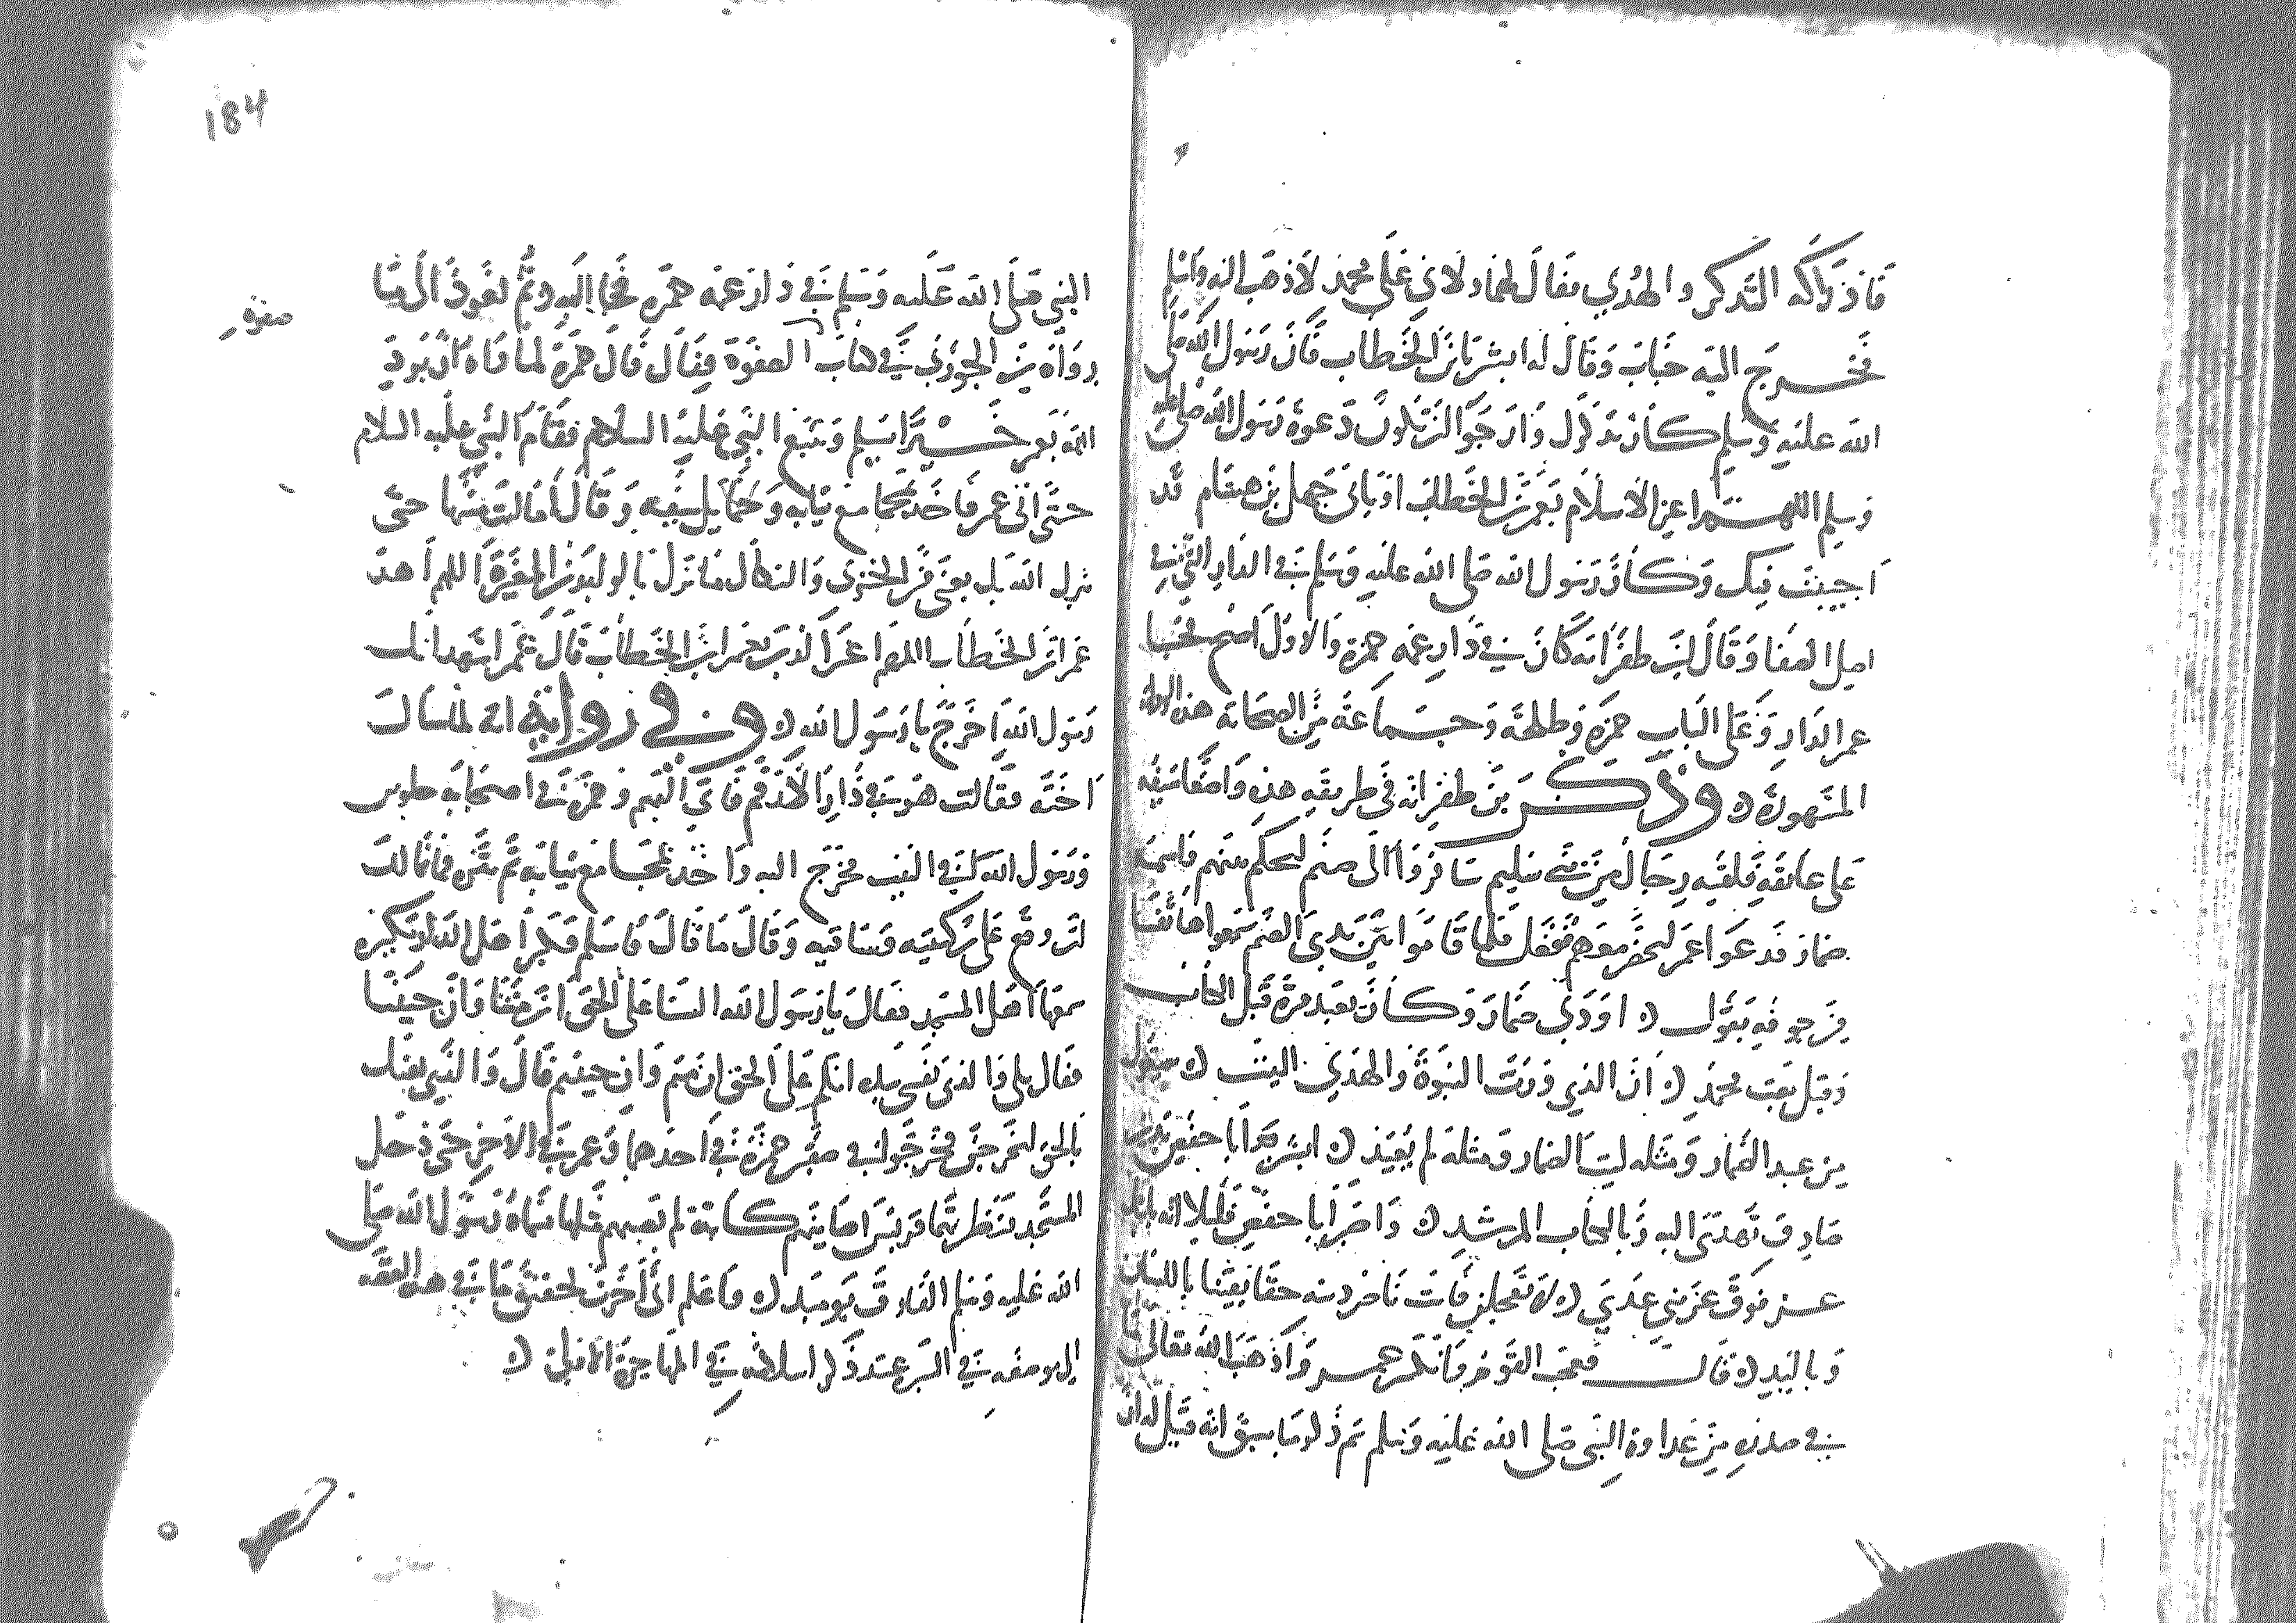 فاذ ذاكه التذكر والهدي فقال لهما دلاني على محمد لاذهب اليه واسلم
فخرج اليه خباب وقال له ابشر يا بن الخطاب فان رسول الله صلى
الله عليه وسلم كان نذكرك وارجوا ان تكون دعوة رسول الله صلى الله عليه
وسلم اللهم اعز الاسلام بعمر بن الخطاب او بابي جهل بن هشام قد
اجيبت فيك وكان رسول الله صلى الله عليه وسلم في الدار التي في
اصل الصفا وقال ابن ظفر انه كان في دار عمه حمزة والاول اصح فجا
عمر الدار وعلى الباب حمزة وطلحة وجماعة من الصحابة هذه الرواية
المشهورة وذكر بن ظفر انه في طريقه هذه واضعا سيفه
على عاتقه فلقيه رجال من بني سليم سافروا الى صنم ليحكم بينهم واسمه
ضمار فدعوا عمر ليحضر معهم ففعل فلما قاموا بين يدي الصنم سمعوا هاتفا
من جوفه يقول اودى ضمار وكان يعبد مرة قبل الكتاب
وقبل بعث محمد ان الذي ورث النبوة والهدى النبي سيقول
من عبد الضمار ومثله ليت الضمار ومثله لم يعبد ابشر ابا حفص بدين
صادق تهدى اليه وبالكتاب المرشد واصبر ابا حفص قليلا انه ياتيك
عز فوق عز بني عدي لا تعجلن فانت ناصر دينه حقا يقينا باللسان
وباليد قال فعجب القوم وانكر عمر واذهب الله تعالى ما
في صدره من عداوة النبي صلى الله عليه وسلم ثم ذكر ما سبق انه قيل له ان
184
النبي صلى الله عليه وسلم في دار عمه حمزة فجا اليه وثم نعوذ الى ما
رواه بن الجوزي في كتاب الصفوة فقال قال حمزة لما راه ان يرد
الله بعمر خيرا يسلم ويتبع النبي عليه السلام فقام النبي عليه السلام
صفوة
حتى اتى عمر فاخذ بمجامع ثيابه وحمايل سيفه وقال اما انت منتها حتى
ينزل الله بك يعني من الخزي والنكال ما نزل بالوليد بن المغيرة اللهم اهد
عمر بن الخطاب اللهم اعز الدين بعمر بن الخطاب قال عمر اشهد انك
رسول الله اخرج يا رسول الله وفي رواية انه لما سال
اخته فقالت هو في دار الارقم فاتى اليهم وحمزة في اصحابه جلوس
ورسول الله في البيت فخرج اليه واخذ بمجامع ثيابه ثم نثره فما تمالك
ان وقع على ركبتيه وساقيه وقال ما قال فاسلم فكبر اهل الدار تكبيرة
سمعها اهل المسجد فقال يا رسول الله السنا على الحق ان متنا وان حيينا
فقال بلى والذي نفسي بيده انكم على الحق ان متم وان حييتم قال والذي بعثك
بالحق لنخرجن فخرجوا في صفين حمزة في احدهما وعمر في الاخر حتى دخل
المسجد فنظرتهما قريش اصابتهم كابة لم تصبهم مثلها فسماه رسول الله صلى
الله عليه وسلم الفاروق يوميذ واعلم اني اخرت تحقيق ما في هذه القصة
الى موضعه في السير عند ذكر اسلامه في المهاجرة الاولى